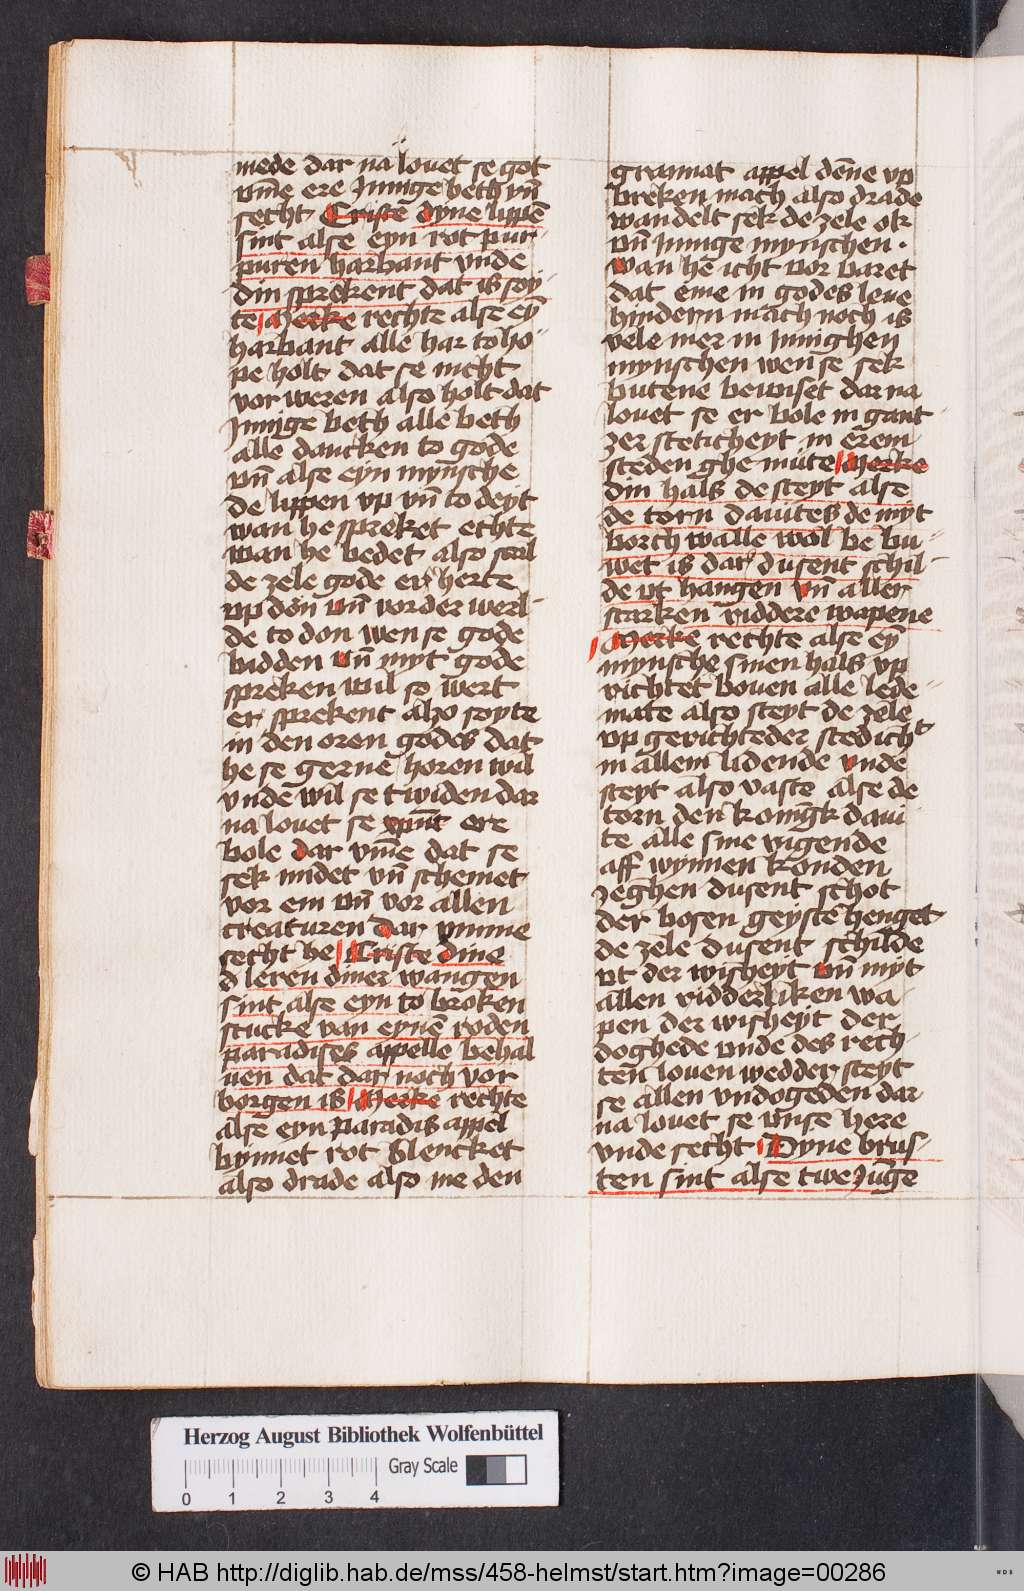 mede dar na louet se got
vm̄e ere Innige beth vn̄
secht Criste dyne lippē
sint alse eyn rot pur-
puren harbant vnde
din sprekent dat is soy-
te Merke rechte alse eȳ
harbant alle har to ho-
pe holt dat se nicht
vorweren also holt dat
Innige beth alle beth
alle dancken to gode
vn̄ alse eyn mȳnsche
de lippen vp vn̄ to deyt
wan he spreket echte
wan he bedet also scal
de zele gode er herte
vp don vn̄ vor der werl-
de to don wen se gode
bidden vn̄ myt gode
spreken wil so wert
er sprekent alzo soyte
in den oren godes dat
he se gerne horen wil
vnde wil se twiden dar
na louet se xpūt ere
bole dar vm̄e dat se
sek midet vn̄ schemet
vor em vn̄ vor allen
creaturen dar vmme
secht he Criste dine
d leren diner wangen
sint alse eyn to broken
stucke van eynē roden
paradises appelle behal
uen dat dar noch vor
borgen is Merke rechte
alse eyn paradis appel
bynnet rot blencket
also drade also me den
grannat appel den̄e vp
breken mach also drade
wandelt sek de zele ok
vn̄ Innige mynschen.
wan he icht vor baret
dat eme in godes leue
hindern mach noch is
vele mer in Innighen
mynschen wen se sek
butene bewiset dar na
louet se er bole in gant-
zer steticheyt in erem
steden ghe müte Merke
din hals de steyt alse
de torn dauites de myt
borch walle wol be bu-
wet is dar dusent schil-
de vt hangen vn̄ aller
starken riddere wapene
Merke rechte alse eȳ
mynsche sinen hals vp
richtet bouen alle lede-
mate also steyt de zele
vp gerichteder stedicht
in allem lidende vnde
steyt also vaste alse de
torn den koningk daui-
te alle sine vigende
aff wynnen konden
zeghen dusent schot
der bosen geyste henget
de zele dusent schilde
vt der wisheyt vn̄ myt
allen ridderliken wa-
pen der wisheyt der
doghede vnde des rech-
ten louen wedder steyt
se allen vndogeden dar
na louet se vnse here
vnde secht Dyne brus-
ten sint alse twe Junge
Herzog August Bibliothek Wolfenbüttel
Gray Scale
0 1 2 3 4
© HAB http://diglib.hab.de/mss/458-helmst/start.htm?image=00286